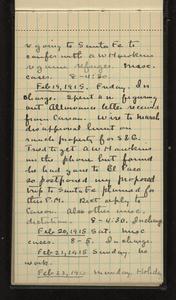 going to Santa Fe to
confer with A W Hawkins
misc.
cases. 8-4:30.
Feb 19, 1915. Friday. In
charge. Spent a.m. figuring
out Allowance letter received
from Carson. Wire to March
disapproval
ranch property for
Tried to get A W Hawkins
on the phone but found
he had gone to El Paso
so postponed my proposed
trip to Santa Fe planned for
this P.M. reply to
Carson. Also other misc.
duties. 8-4:30. In charge.
Feb 20, 1915 Sat. misc
cases. 8-5. In charge.
Feb 21, 1915 Sunday. No
work.
Feb 22, 1915 Monday. Holiday